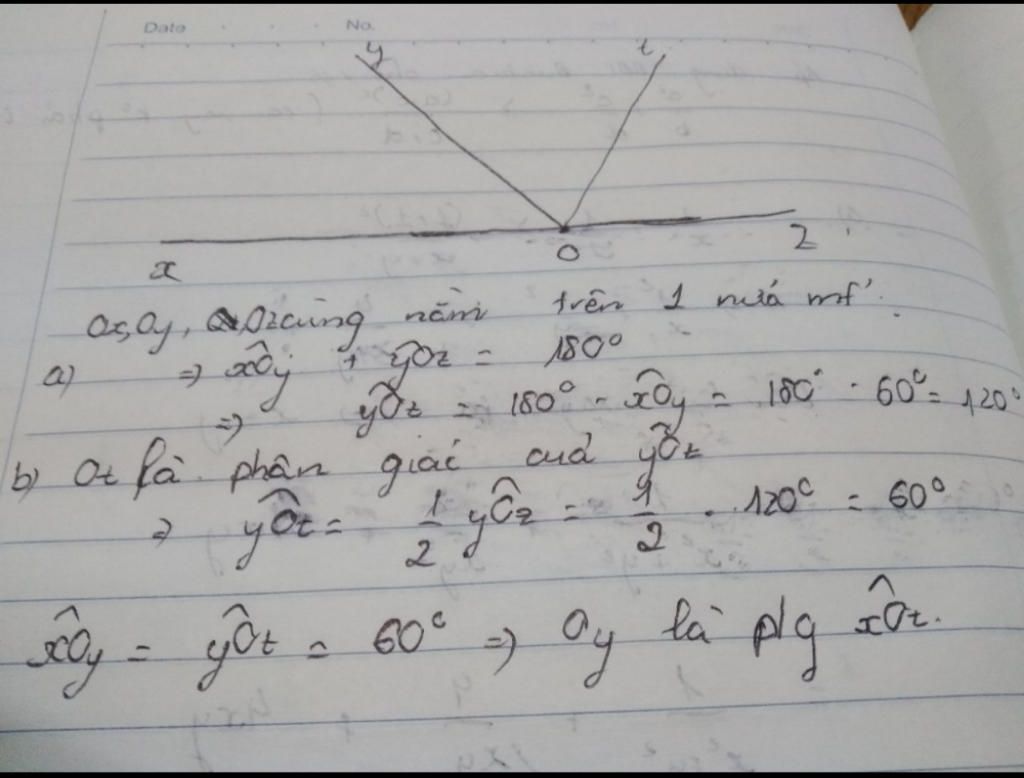 Date No.
y t
x O z
Ox, Oy, Oz cùng nằm trên 1 nửa mf'.
a) => xÔy + yÔz = 180°
=> yÔz = 180° - xÔy = 180° - 60° = 120°
b) Ot là phân giác của yÔz
=> yÔt = 1/2 yÔz = 1/2 . 120° = 60°
xÔy = yÔt = 60° => Oy là p/g xÔt.